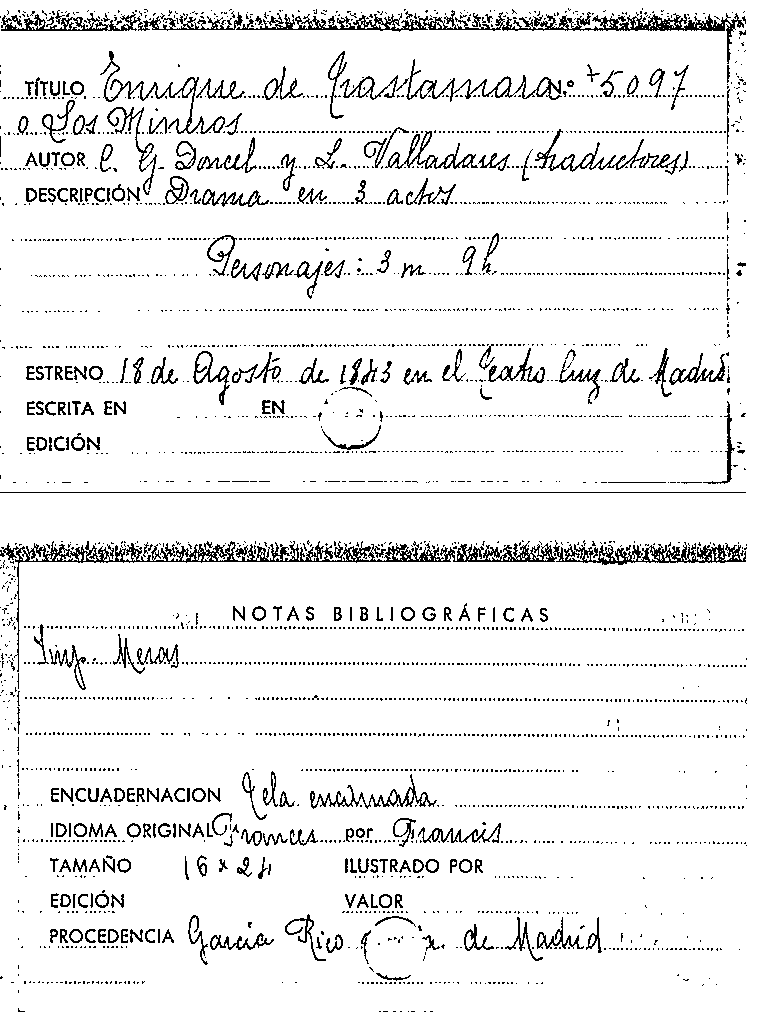 TÍTULO Enrique de Trastamara N.º +5097
o Los Mineros
AUTOR C. G. Doncel y L. Valladares (traductores)
DESCRIPCIÓN Drama en 3 actos
Personajes: 3 m 9h
ESTRENO 18 de Agosto de 1843 en el Teatro Cruz de Madrid
ESCRITA EN EN
EDICIÓN
NOTAS BIBLIOGRÁFICAS
Imp. Meras
ENCUADERNACION Tela encarnada
IDIOMA ORIGINAL Frances por Francis
TAMAÑO 16 x 24 ILUSTRADO POR
EDICIÓN VALOR
PROCEDENCIA García Rico de Madrid